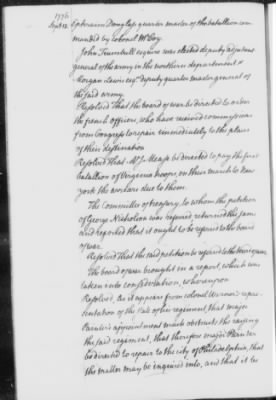 1776
Sept. 12. Ephraim Douglass quarter master of the battallion com
manded by colonel McCoy.
John Trumbull esquire was elected deputy adjutant
general of the army in the northern department &
Morgan Lewis esqr. deputy quarter master general of
the said army.
Resolved That the board of war be directed to order
the french officers, who have received commissions
from Congress to repair immediately to the places
of their destination
Resolved That Mr. J. Mease be directed to pay the first
battallion of Virginia troops, on their march to New
york the arrears due to them.
The Committee of treasury, to whom the petition
of George Nicholson was referred, returned the same
and reported that it ought to be referred to the board
of war.
Resolved That the said petition be referred to the board of war.
The board of war brought in a report, which was
taken into consideration, whereupon
Resolved, As it appears from colonel repre-
sentation of the state of his regiment, that major
appointment much obstructs the raising
the said regiment, that therefore major
be directed to repair to the city of Philadelphia, that
the matter may be inquired into, and that it be